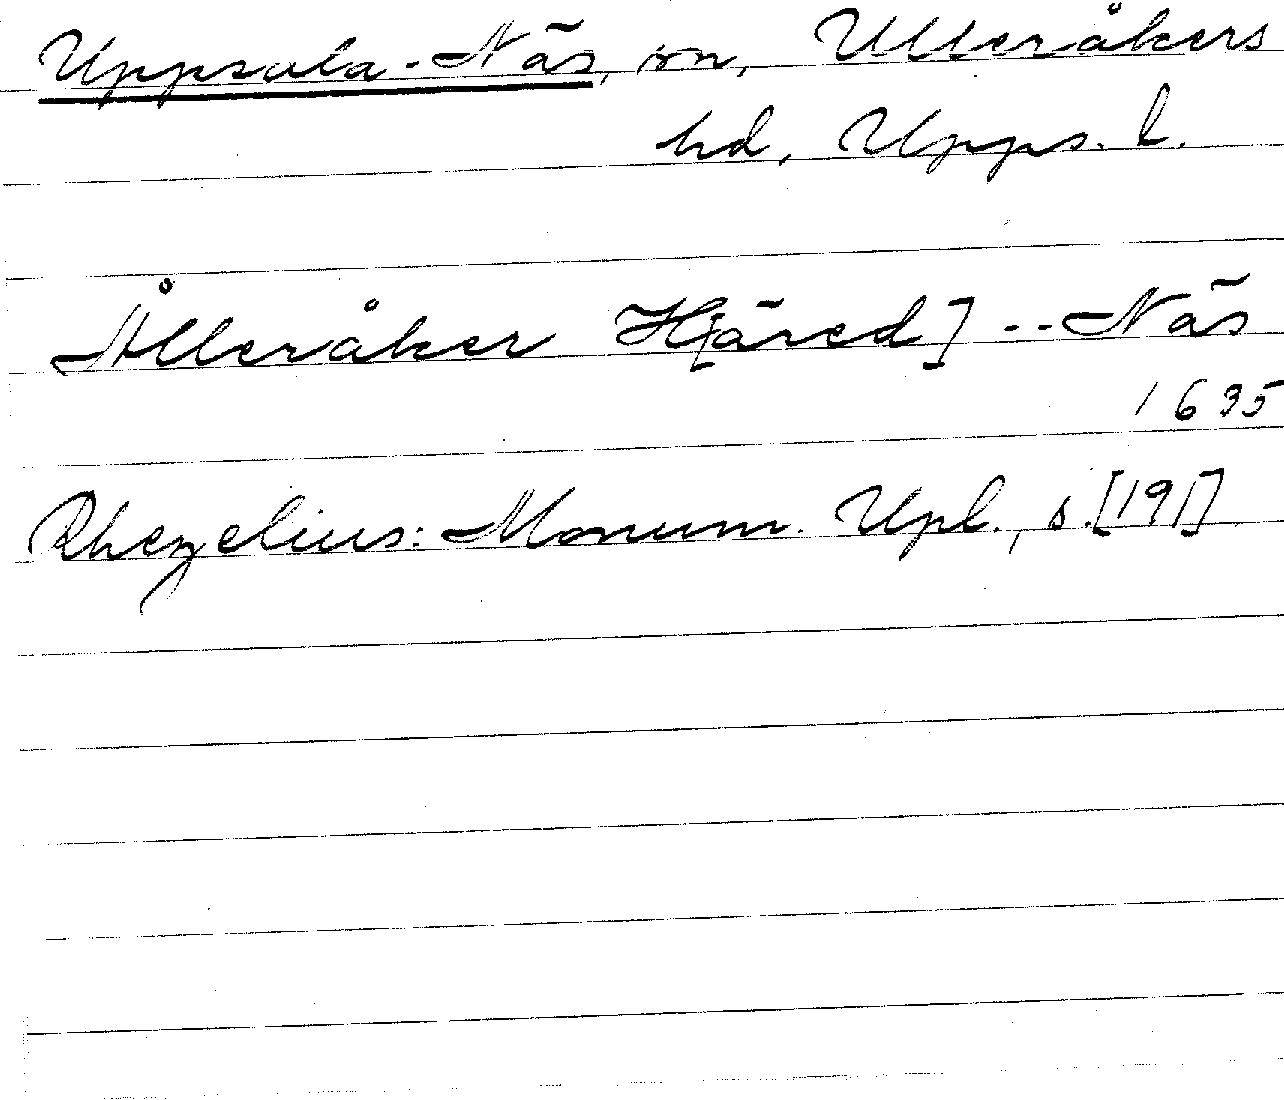 Uppsala-Näs, sn, Ulleråkers
hd, Upps. l.
Ålleråker H[äred] -- Näs
1635
Rhezelius: Monum. Upl., s. [191]